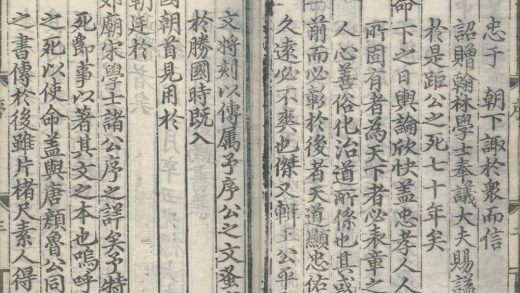 忠于　朝下諏於衆而信
詔贈翰林學士奉議大夫賜謚
於是距公之死七十年矣
命下之日輿論欣快蓋忠孝人人
所固有者為天下者必表章之
人心善俗化治道所係也其或
前而必彰於後者天道顯忠佑
久遠必不爽也傑又輯王公平
文將刻以傳属予序公之文蚤
於勝國時既入
國朝首見用於
朝廷於
郊廟宋學士諸公序之詳矣予特
死節事以著其文之本也嗚呼
之死以使命蓋與唐顏魯公同
之書傳於後雖片楮尺素人得